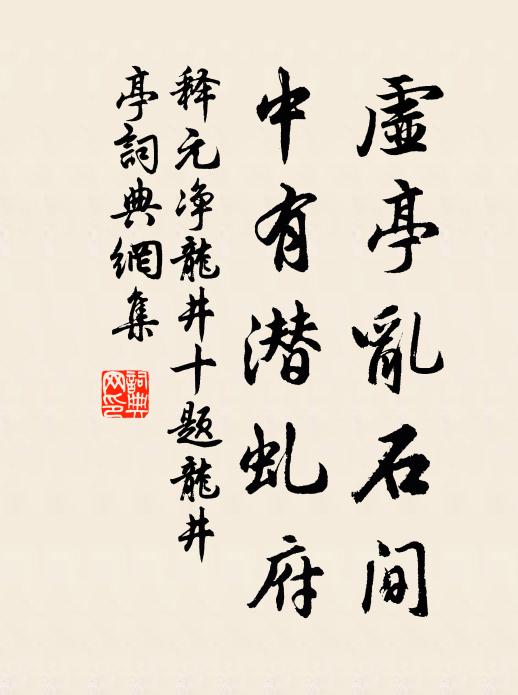 虛亭亂石间
中有潜虬府
释元净龍井十题龍井
亭詞典網集
詞典网印